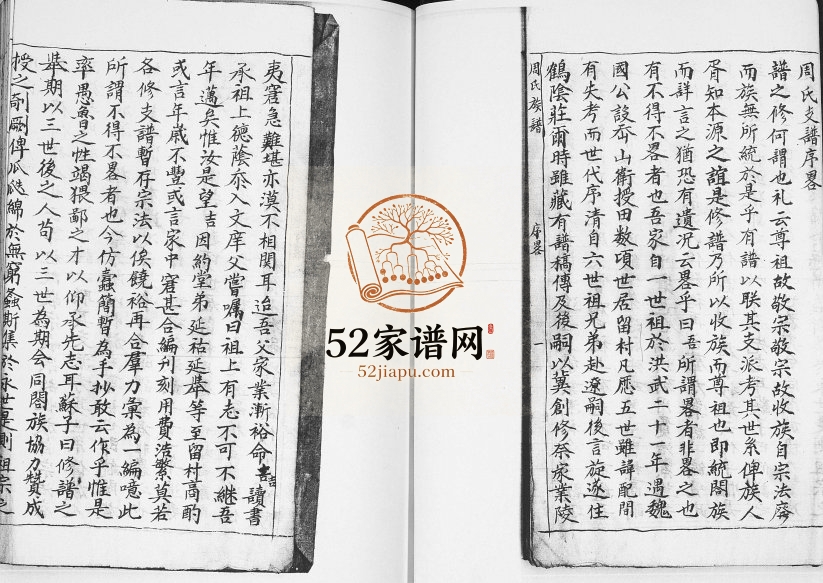 周氏支譜序畧
譜之修何謂也礼云尊祖故敬宗敬宗故收族自宗法廢
而族無所統於是乎有譜以聯其支派考其世系俾族人
胥知本源之誼是修譜乃所以收族而尊祖也即統閤族
而詳言之猶恐有遺况云畧乎曰吾所謂畧者非畧之也
有不得不畧者也吾家自一世祖於洪武二十一年遇魏
國公設嵞山衛授田数頃世居留村凡應五世雖諱配間
有失考而世代序清自六世祖兄弟赴遼嗣後言旋遂住
鶴陰莊爾時雖藏有譜稿傳及後嗣以冀創修奈家業陵
周氏族譜
序畧
一
夷窘急難堪亦漠不相関耳迨吾父家業漸裕命吉讀書
承祖上德蔭忝入文庠父嘗嘱曰祖上有志不可不継吾
年邁矣惟汝是望吉因約堂弟延祜延舉等至留村商酌
或言年嵗不豐或言家中窘甚合編刊刻用費浩繁莫若
各修支譜暫存宗法以俟饒裕再合羣力彙為一編噫此
所謂不得不畧者也今仿蠹簡暫為手抄敢云作乎惟是
率愚魯之性竭猥鄙之才以仰承先志耳蘇子曰修譜之
舉期以三世後之人苟以三世為期会同閤族協力贊成
授之剞劂俾瓜瓞綿於無窮螽斯集於永世是則祖宗之
52家谱网
52jiapu.com